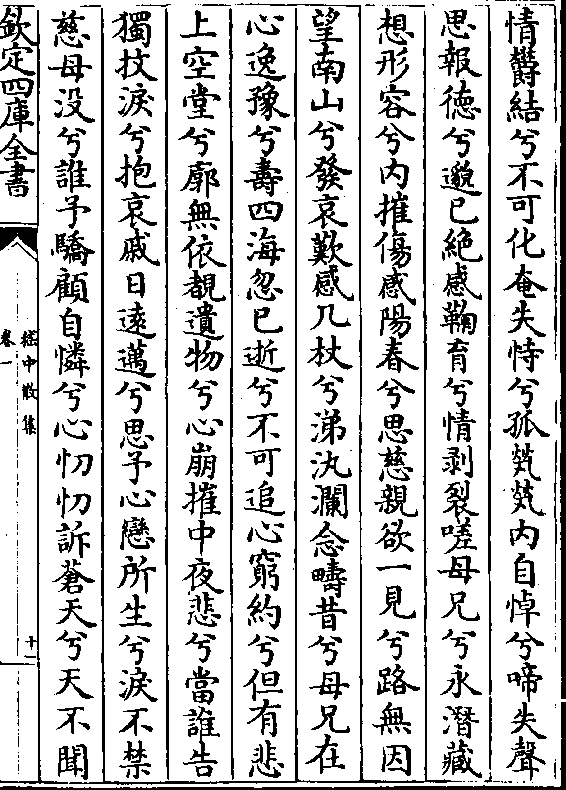 情欝結兮不可化奄失恃兮孤煢煢内自悼兮啼失聲
思報徳兮邈已絶感鞠育兮情剥裂嗟母兄兮永潛藏
想形容兮内摧傷感陽春兮思慈親欲一見兮路無因
望南山兮發哀歎感几杖兮涕汍瀾念疇昔兮母兄在
心逸豫兮壽四海忽已逝兮不可追心窮約兮但有悲
上空堂兮廓無依覩遺物兮心崩摧中夜悲兮當誰告
獨抆淚兮抱哀戚日逺邁兮思予心戀所生兮淚不禁
慈母没兮誰予驕顧自憐兮心忉忉訴蒼天兮天不聞
欽定四庫全書
嵇中散集
卷一
十一